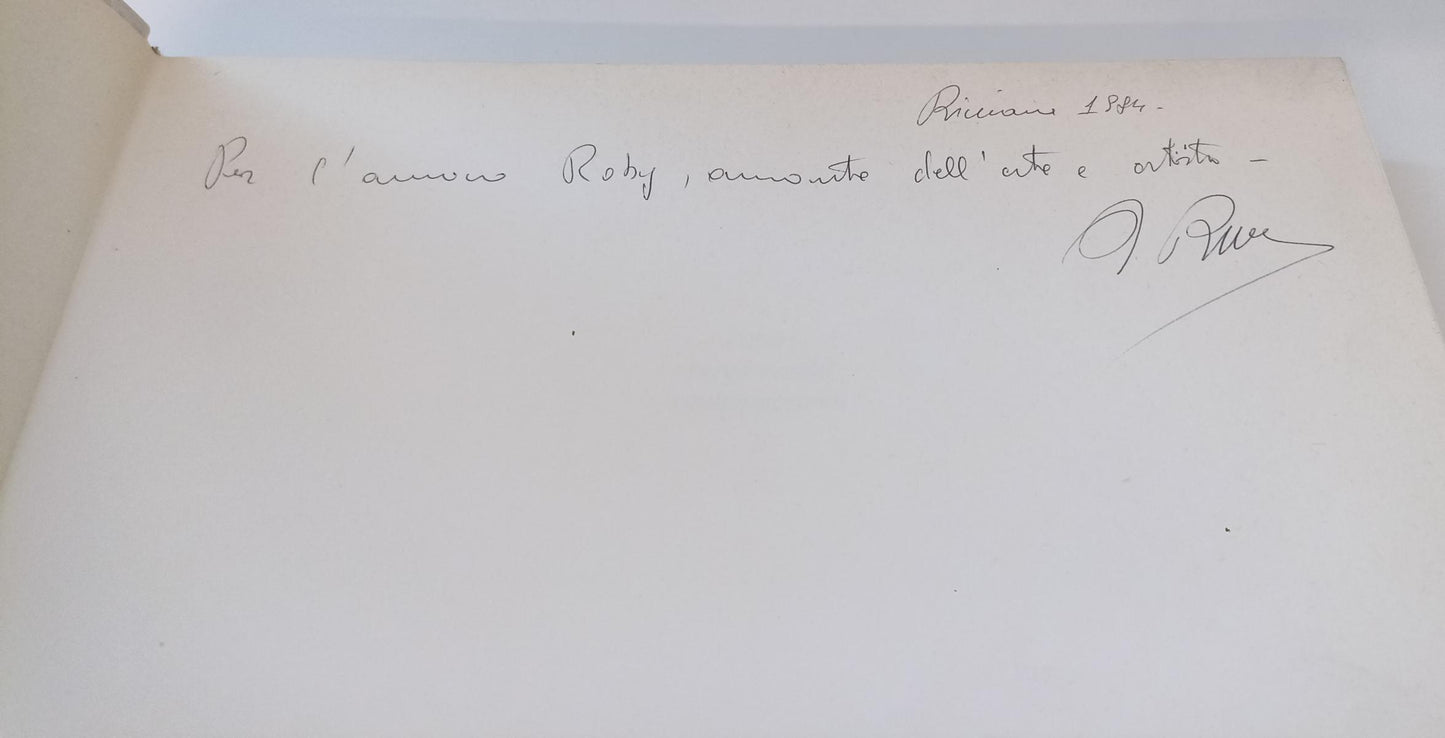 Riccione 1984.
Per l'amico Roby, amante dell'arte e artista –